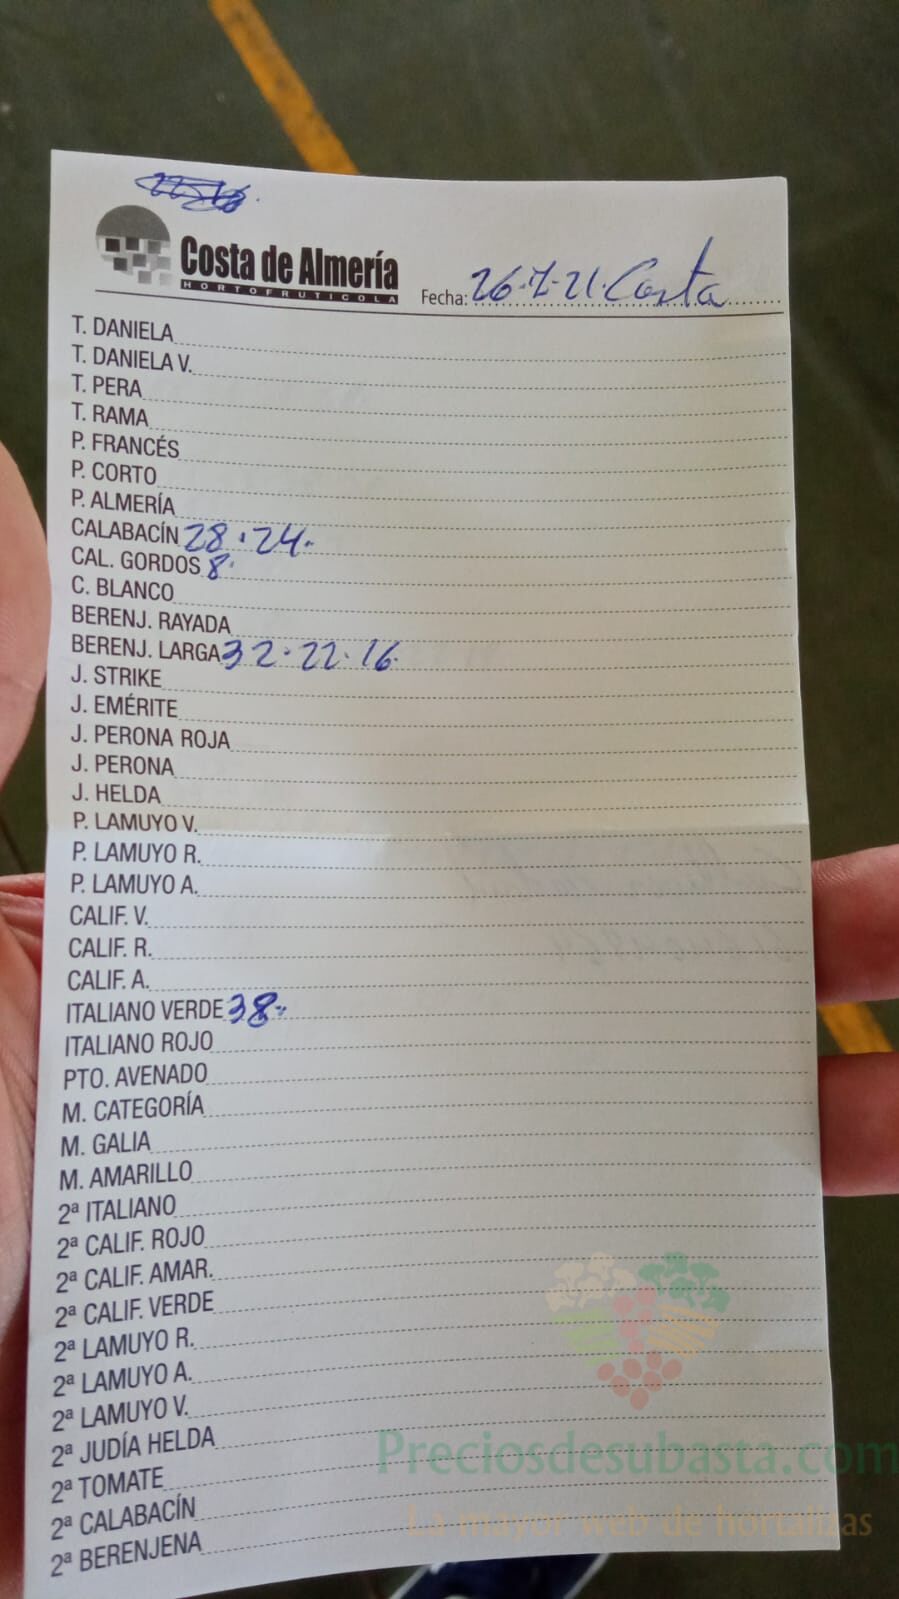 Costa de Almería
HORTOFRUTICOLA
Fecha: 26.7.21. Costa
T. DANIELA
T. DANIELA V.
T. PERA
T. RAMA
P. FRANCÉS
P. CORTO
P. ALMERÍA
CALABACÍN 28.24.
CAL. GORDOS 8.
C. BLANCO
BERENJ. RAYADA
BERENJ. LARGA 32.22.16.
J. STRIKE
J. EMÉRITE
J. PERONA ROJA
J. PERONA
J. HELDA
P. LAMUYO V.
P. LAMUYO R.
P. LAMUYO A.
CALIF. V.
CALIF. R.
CALIF. A.
ITALIANO VERDE 38.
ITALIANO ROJO
PTO. AVENADO
M. CATEGORÍA
M. GALIA
M. AMARILLO
2ª ITALIANO
2ª CALIF. ROJO
2ª CALIF. AMAR.
2ª CALIF. VERDE
2ª LAMUYO R.
2ª LAMUYO A.
2ª LAMUYO V.
2ª JUDÍA HELDA
2ª TOMATE
2ª CALABACÍN
2ª BERENJENA
Preciosdesubasta.com
La mayor web de hortalizas